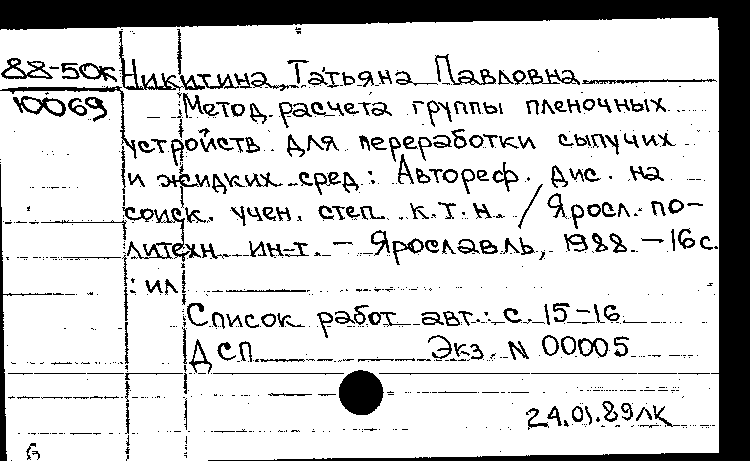 88-50к Никитина, Татьяна Павловна
10069 Метод расчета группы пленочных
устройств для переработки сыпучих
и жидких сред: Автореф. дис. на
соиск. учен. степ. к.т.н. / Яросл. по-
литехн. ин-т. - Ярославль, 1988. - 16 с.
: ил
Список работ авт.: с. 15-16
ДСП Экз. N 00005
24.01.89 ЛК
6